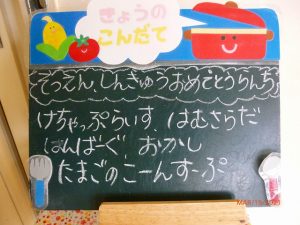 きょうの
こんだて
そつえん、しんきゅうおめでとうらんち
けちゃっぷらいす、はむさらだ
はんばーぐ、おかし
たまごのこーんすーぷ